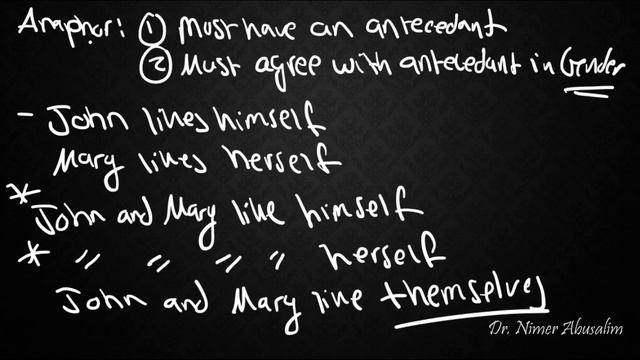 Anaphor: ① Must have an antecedant
② Must agree with antecedant in Gender
- John likes himself
Mary likes herself
* John and Mary like himself
* " " " " herself
John and Mary like themselves
Dr. Nimer Abusalim